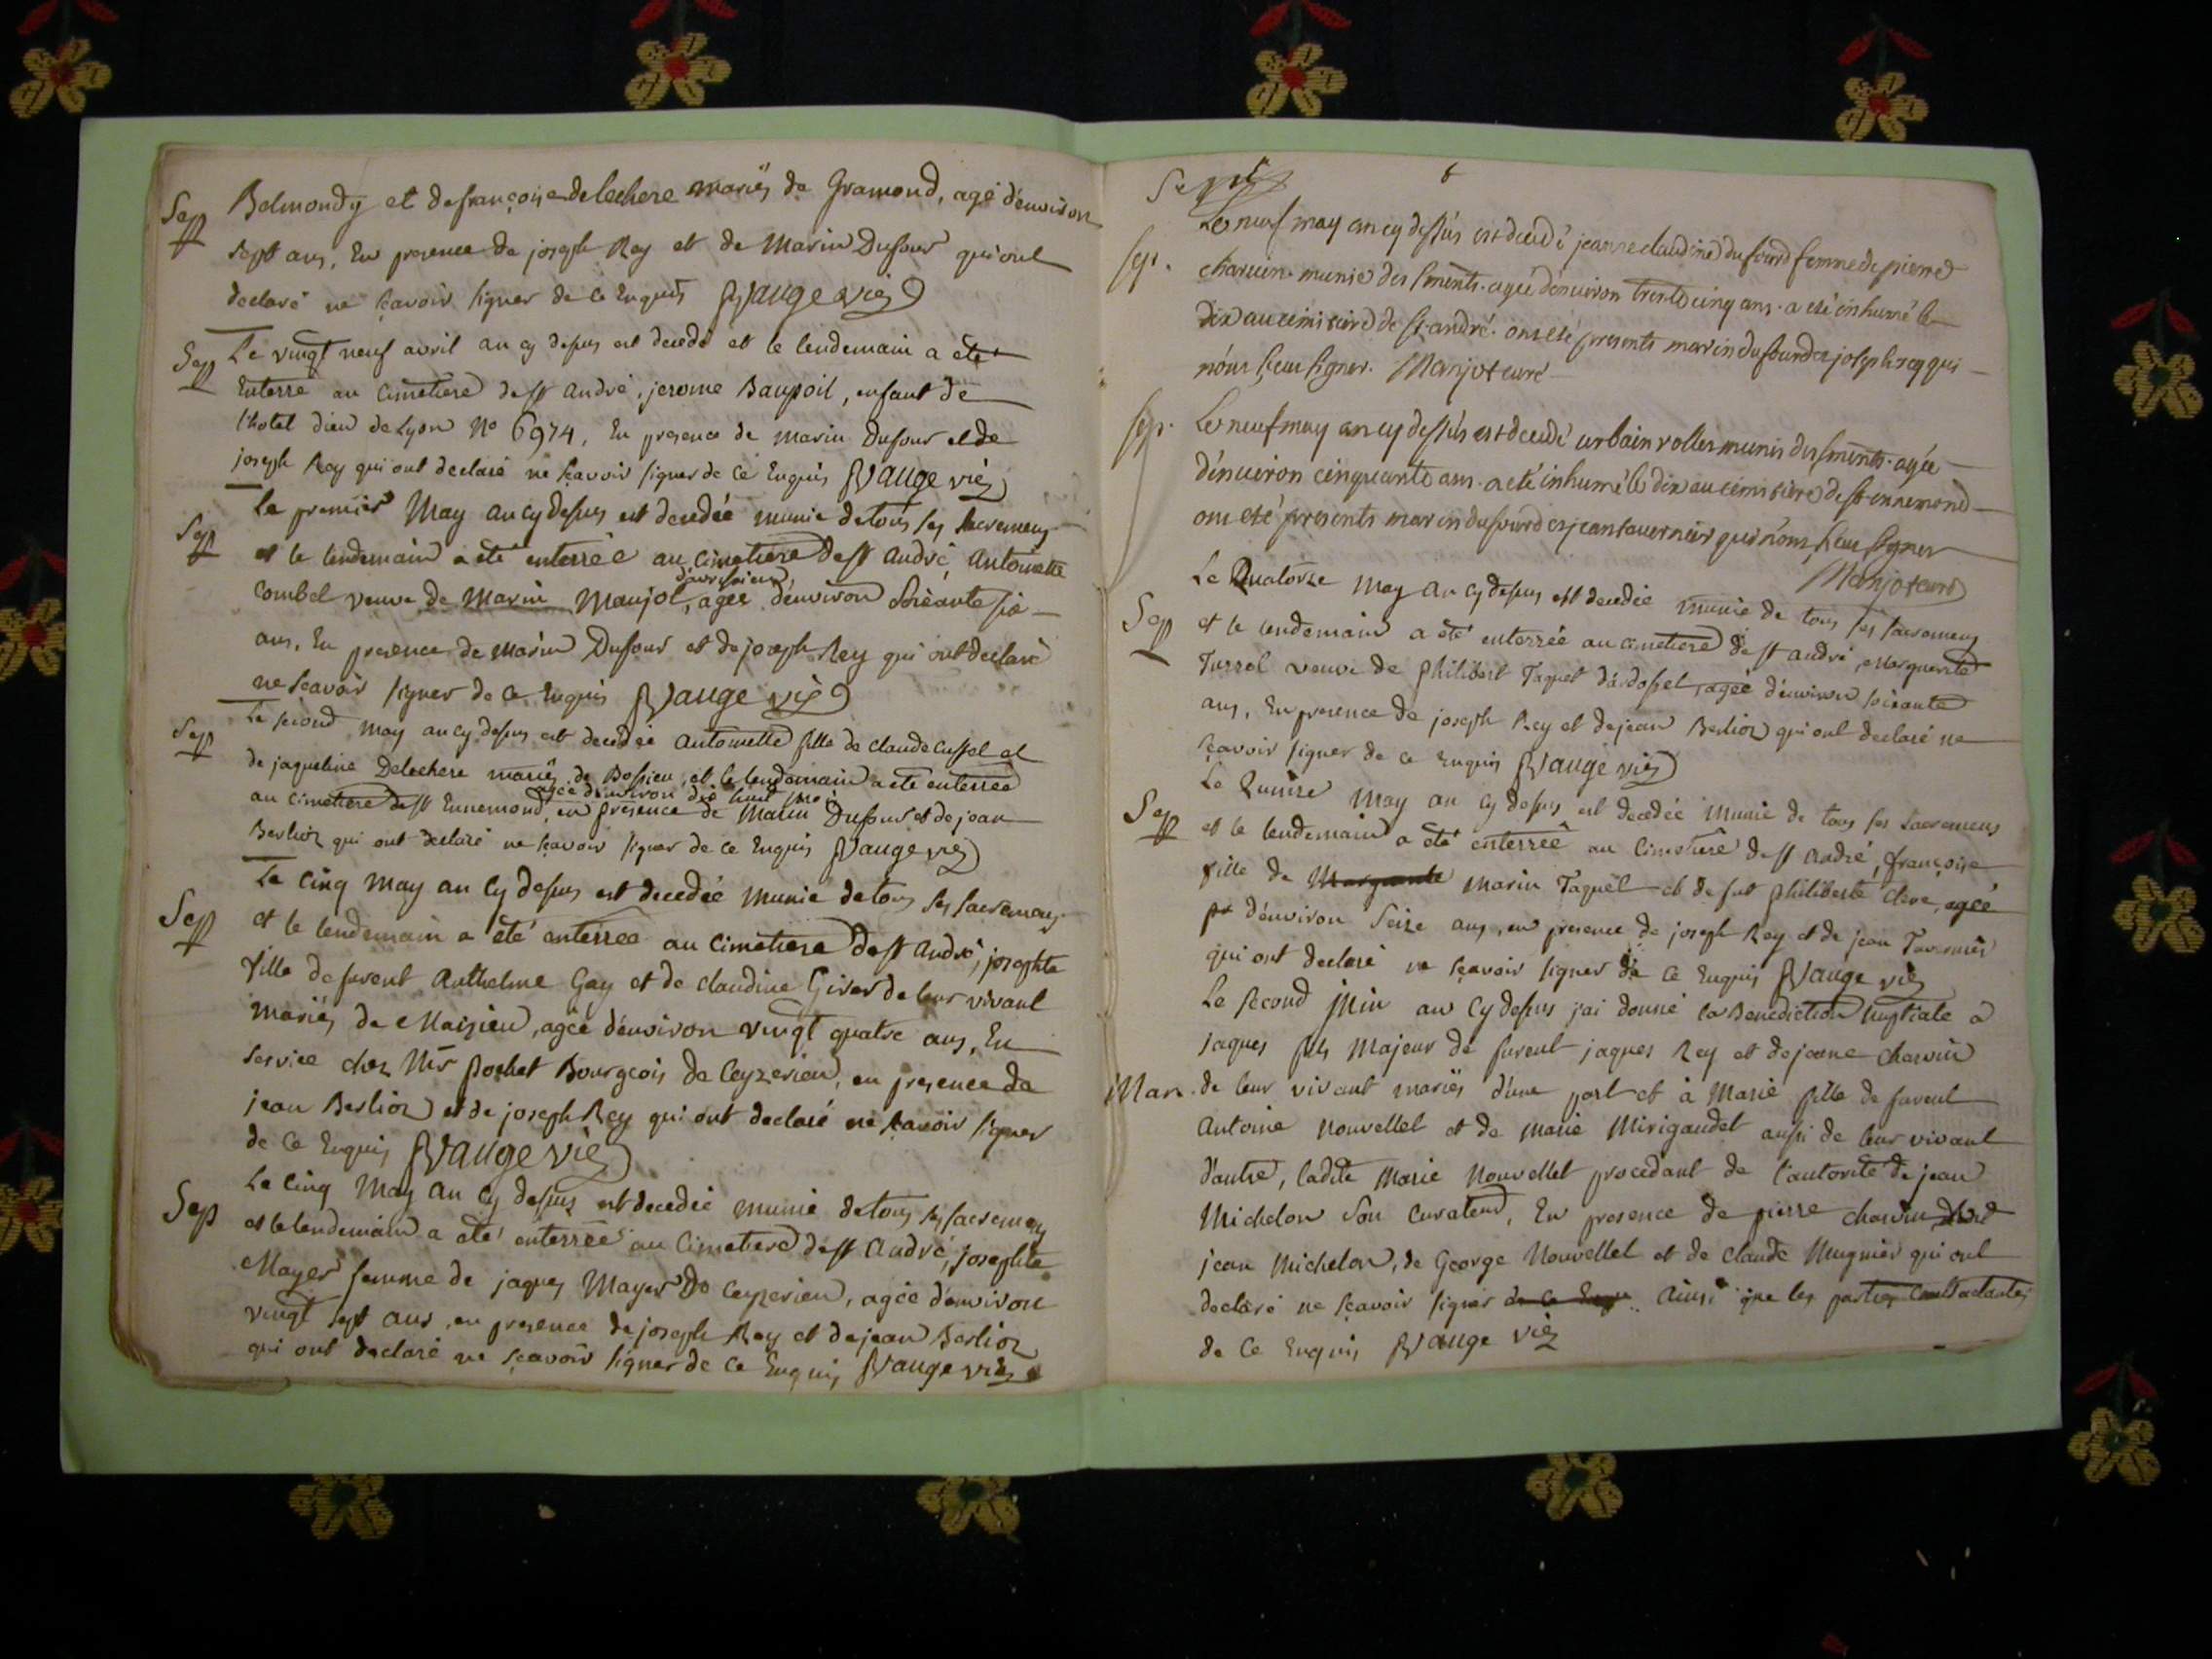 Sep
Belmondy et de françoise delechere mariés de Gramond, agé d'environ
sept ans, En presence de joseph Rey et de Marin Dufour qui ont
declaré ne sçavoir signer de ce Enquis Vauge vic
Sep
Le vingt neuf avril an cy dessus est decedé et le lendemain a eté
Enterré au Cimetiere de st André, jerome Baupoil, enfant de
l'hotel dieu de Lyon No 6974, En presence de marin Dufour et de
joseph Rey qui ont declaré ne sçavoir signer de ce Enquis Vauge vic
Le premier May an cy dessus est decedée munie de tous ses sacremens
Sep
et le lendemain a été enterrée au Cimetiere de st André, Antoinette
combet veuve de Marin Manjot, agée d'environ soixante six
ans, En presence de Marin Dufour et de joseph Rey qui ont declaré
ne sçavoir signer de ce Enquis Vauge vic
Sep
Le second may an cy dessus est decedée Antoinette fille de claude Cussel et
de jaqueline Delechere mariés de Bossieu, et le lendemain a eté enterrée
agée d'environ dix huit mois
au cimetiere de st Ennemond, en presence de Marin Dufour et de jean
Berlioz qui ont declaré ne sçavoir signer de ce Enquis Vauge vic
Le cinq May an cy dessus est decedée Munie de tous ses sacremens
Sep
et le lendemain a été enterrée au Cimetiere de st André, josephte
fille de furent Anthelme Gay et de claudine Girer de leur vivant
mariés de Maizieu, agée d'environ vingt quatre ans, En
service chez Mr pochet Bourgeois de Ceyzerieu, en presence de
jean Berlioz et de joseph Rey qui ont declaré ne sçavoir signer
de ce Enquis Vauge vic
Sep
Le cinq May an cy dessus est decedée munie de tous ses sacremens
et le lendemain a été enterrée au Cimetiere de st André, josephte
Mayer femme de jaques Mayer De Ceyzerieu, agée d'environ
vingt sept ans, en presence de joseph Rey et de jean Berlioz
qui ont declaré ne sçavoir signer de ce Enquis Vauge vic
6
Sep.
Le neuf may an cy dessus est decedé jeanne claudine dufourd femme de pierre
charvin munie des sments. agée d'environ trente cinq ans. a eté inhumé le
dix au cimitiere de st andré. ont eté presents marin dufourd et joseph rey qui
n'ont sceu signer. Manjot curé
Sep.
Le neuf may an cy dessus est decedé urbain rollet munis des sments. agée
d'environ cinquante ans. a eté inhumé le dix au cimitiere de st ennemond
ont eté presents marin dufourd et jean tavernier qui n'ont sceu signer
Manjot curé
Sep
Le Quatorze may an cy dessus est decedée munie de tous ses sacremens
et le lendemain a eté enterrée au cimetiere de st André, Marguerite
Turrel veuve de philibert Taquet d'ardosset, agée d'environ soixante
ans, En presence de joseph Rey et de jean Berlioz qui ont declaré ne
sçavoir signer de ce Enquis Vauge vic
Sep
Le Quinze May an cy dessus est decedée Munie de tous ses sacremens
et le lendemain a été enterrée au Cimetiere de st André, françoise
fille de Marguerite Marin Taquet et de fut philiberte Cleve, agée
d'environ Seize ans, en presence de joseph Rey et de jean Tavernier
qui ont declaré ne sçavoir signer de ce Enquis Vauge vic
Le second juin an cy dessus j'ai donné la Benediction Nuptiale a
jaques fils Majeur de furent jaques Rey et de jeane charvin
Mar.
de leur vivant mariés d'une part et à Marie fille de furent
Antoine Nouvellet et de marie Mirigaudet aussi de leur vivant
d'autre, ladite Marie Nouvellet procedant de l'autorité de jean
Michelon son Curateur, En presence de pierre charvin
jean Michelon, de George Nouvellet et de Claude Mugnier qui ont
declaré ne sçavoir signer de ce Enquis Ainsi que les parties Contractantes
de ce Enquis Vauge vic